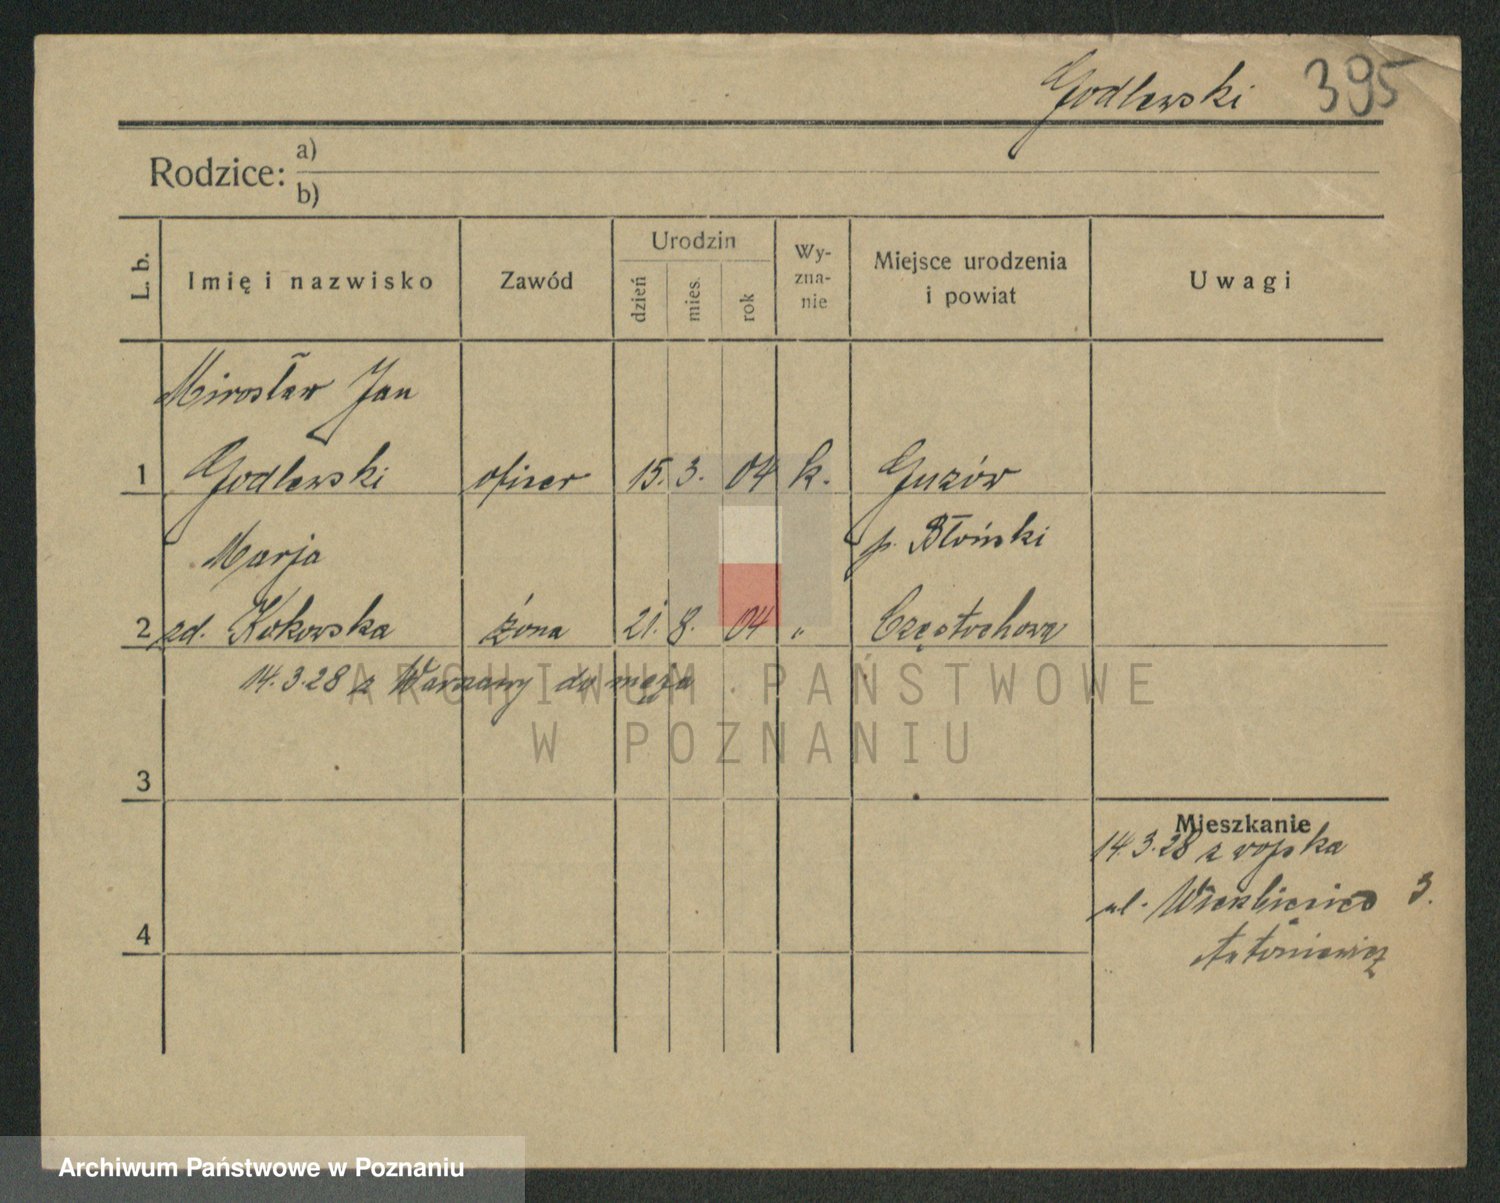 Godlewski 395
Rodzice: a)
b)
L. b.
Imię i nazwisko
Zawód
Urodzin
dzień
mies.
rok
Wy-
zna-
nie
Miejsce urodzenia
i powiat
Uwagi
Mirosław Jan
1 Godlewski oficer 15. 3. 04 k. Guzów
Marja p. Błoński
2 zd. Kokowska żona 21. 8. 04 „ Częstochowa
14.3.28 z Warszawy do męża
ARCHIWUM PAŃSTWOWE
W POZNANIU
3
Mieszkanie
14.3.28 z wojska
ul. 3.
4
Antoniewicz
Archiwum Państwowe w Poznaniu